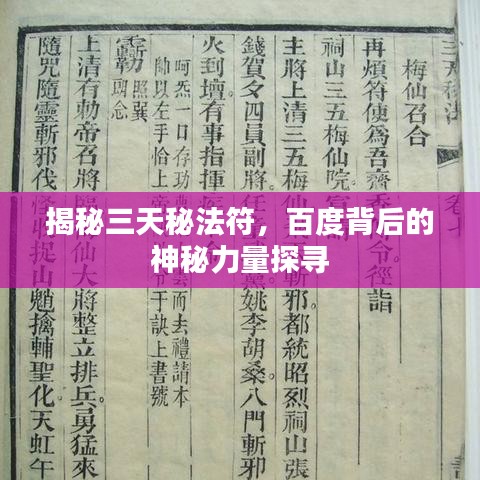 揭秘三天秘法符，百度背后的
神秘力量探寻
三天秘法 卷七
梅仙召合
再煩符使為吾齎 令徑詣
祠山三五梅仙院
主將上清三五梅 斬邪都統昭烈祠山張
錢賀夕四員副將 黨姚李胡桑八門斬邪
火到壇有事指揮
呵炁一日存功 而去禮請本
帥以左手恰上帝 于訣上書號
照巽
上清有勅帝召將臨 大將整立排兵勇猛來
隨咒隨靈斬邪伐 怪收 魁擒輔聖化天虹午